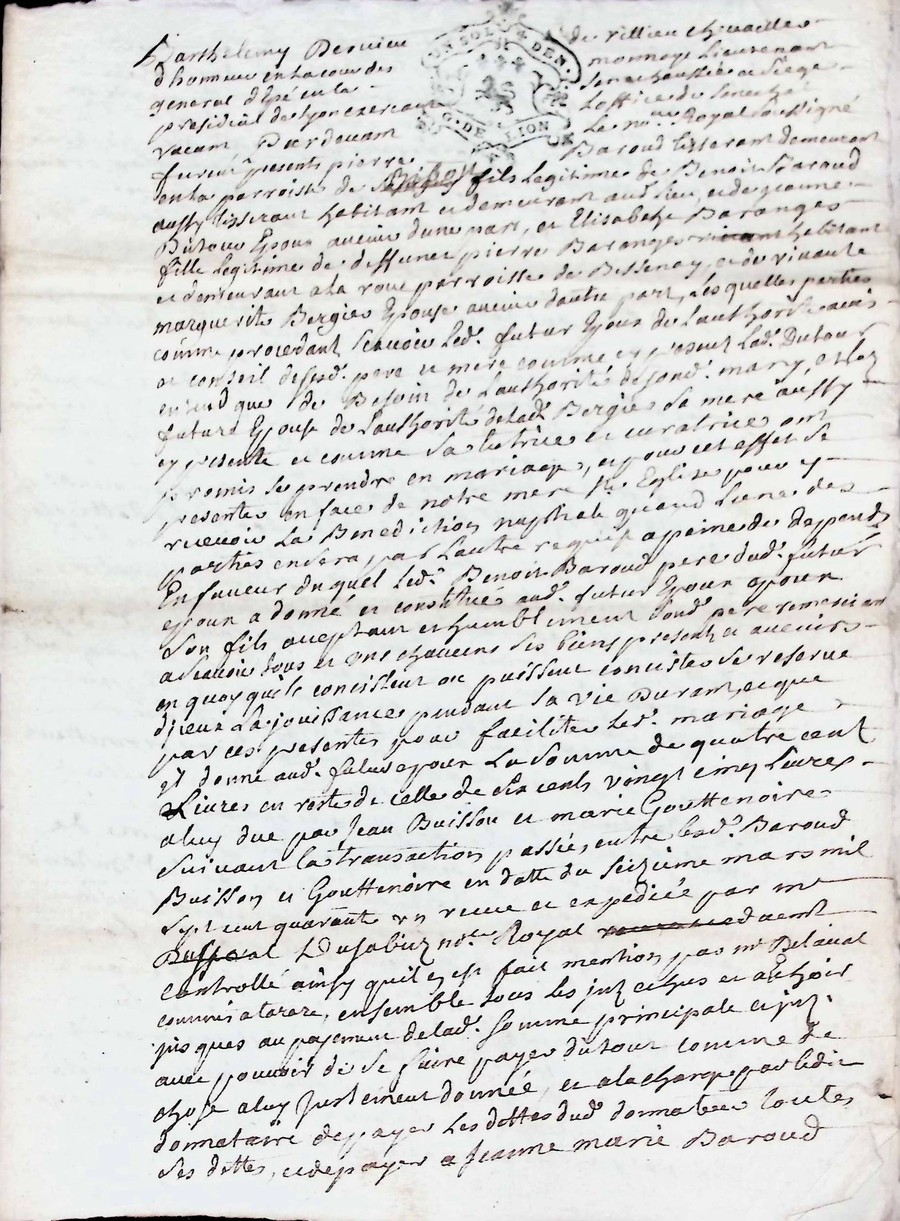 Barthelemy de villieu chevaillee
d'honneur en la cour des monnoye Lieutenant
general d'Epé en la Senechaussée et Siege
presidial de lyon exercant L'office de Senechal
vacant Pardevant Le no.re Royal Soussigné
furent presents pierre Baroud tisserant demeurant
UN SOL 4 DEN.
G. DE LION
en la parroisse de fils legitime de Benoit Baroud
aussy tisserant habitant et demeurant aud. lieu, et de jeanne
Dutour Epoux avenir d'une part, et Elisabeth Baranges
fille legitime de deffunct pierre Baranges vivant habitant
et demeurant a la roue parroisse de Bessenay, et de vivante
marguerite Bergier Epouse avenir d'autre part, Lesquelles parties
comme procedant Scavoir led. futur Epoux de L'authorité avis
et conseil desd. pere et mere comme cy present lad. Dutour
entend que de Besoin de L'authorité de sond. mary, et la
future Epouse de L'authorité de lad. Bergier Sa mere aussy
cy presente et comme Sa tutrice et curatrice ont
promis se prendre en mariage, et pour cet effet se
presenter en face de notre mere Ste Eglise pour y
recevoir La Benediction nuptiale quand L'une des
parties en sera par L'autre requise a peine de depends
En faveur duquel led. Benoit Baroud pere dud. futur
epoux a donné et constitué aud. futur Epoux
Son fils acceptant et humblement Sond. pere remerciant
a scavoir tous et uns chacuns ses biens presents et avenirs
en quoy quils consistent ou puissent consister se reserve
d'iceux la jouissance pendant sa vie Durant, et que
par ces presentes pour faciliter led. mariage
il donne aud. futur epoux La Somme de quatre cent
Livres en reste de celle de six cents vingt cinq Livres
a luy due par Jean Buisson et marie Gouttenoire
suivant la transaction passée entre led. Baroud
Buisson et Gouttenoire en datte du seizieme mars mil
sept cent quarante un receue et expediée par me
Dusabliz no.re Royal
controllé ainsy quil y est fait mention par mr Delaval
commis a tarare, ensemble tous les jnz echus et a Echoir
jusques au payement de lad. Somme principale et jnz.
avec pouvoir de se faire payer du tout comme de
chose a luy justement donnée, et a la charge par ledit
donnataire de payer les dettes dud. donnateur toutes
ses dettes, et de payer a Jeanne marie Baroud